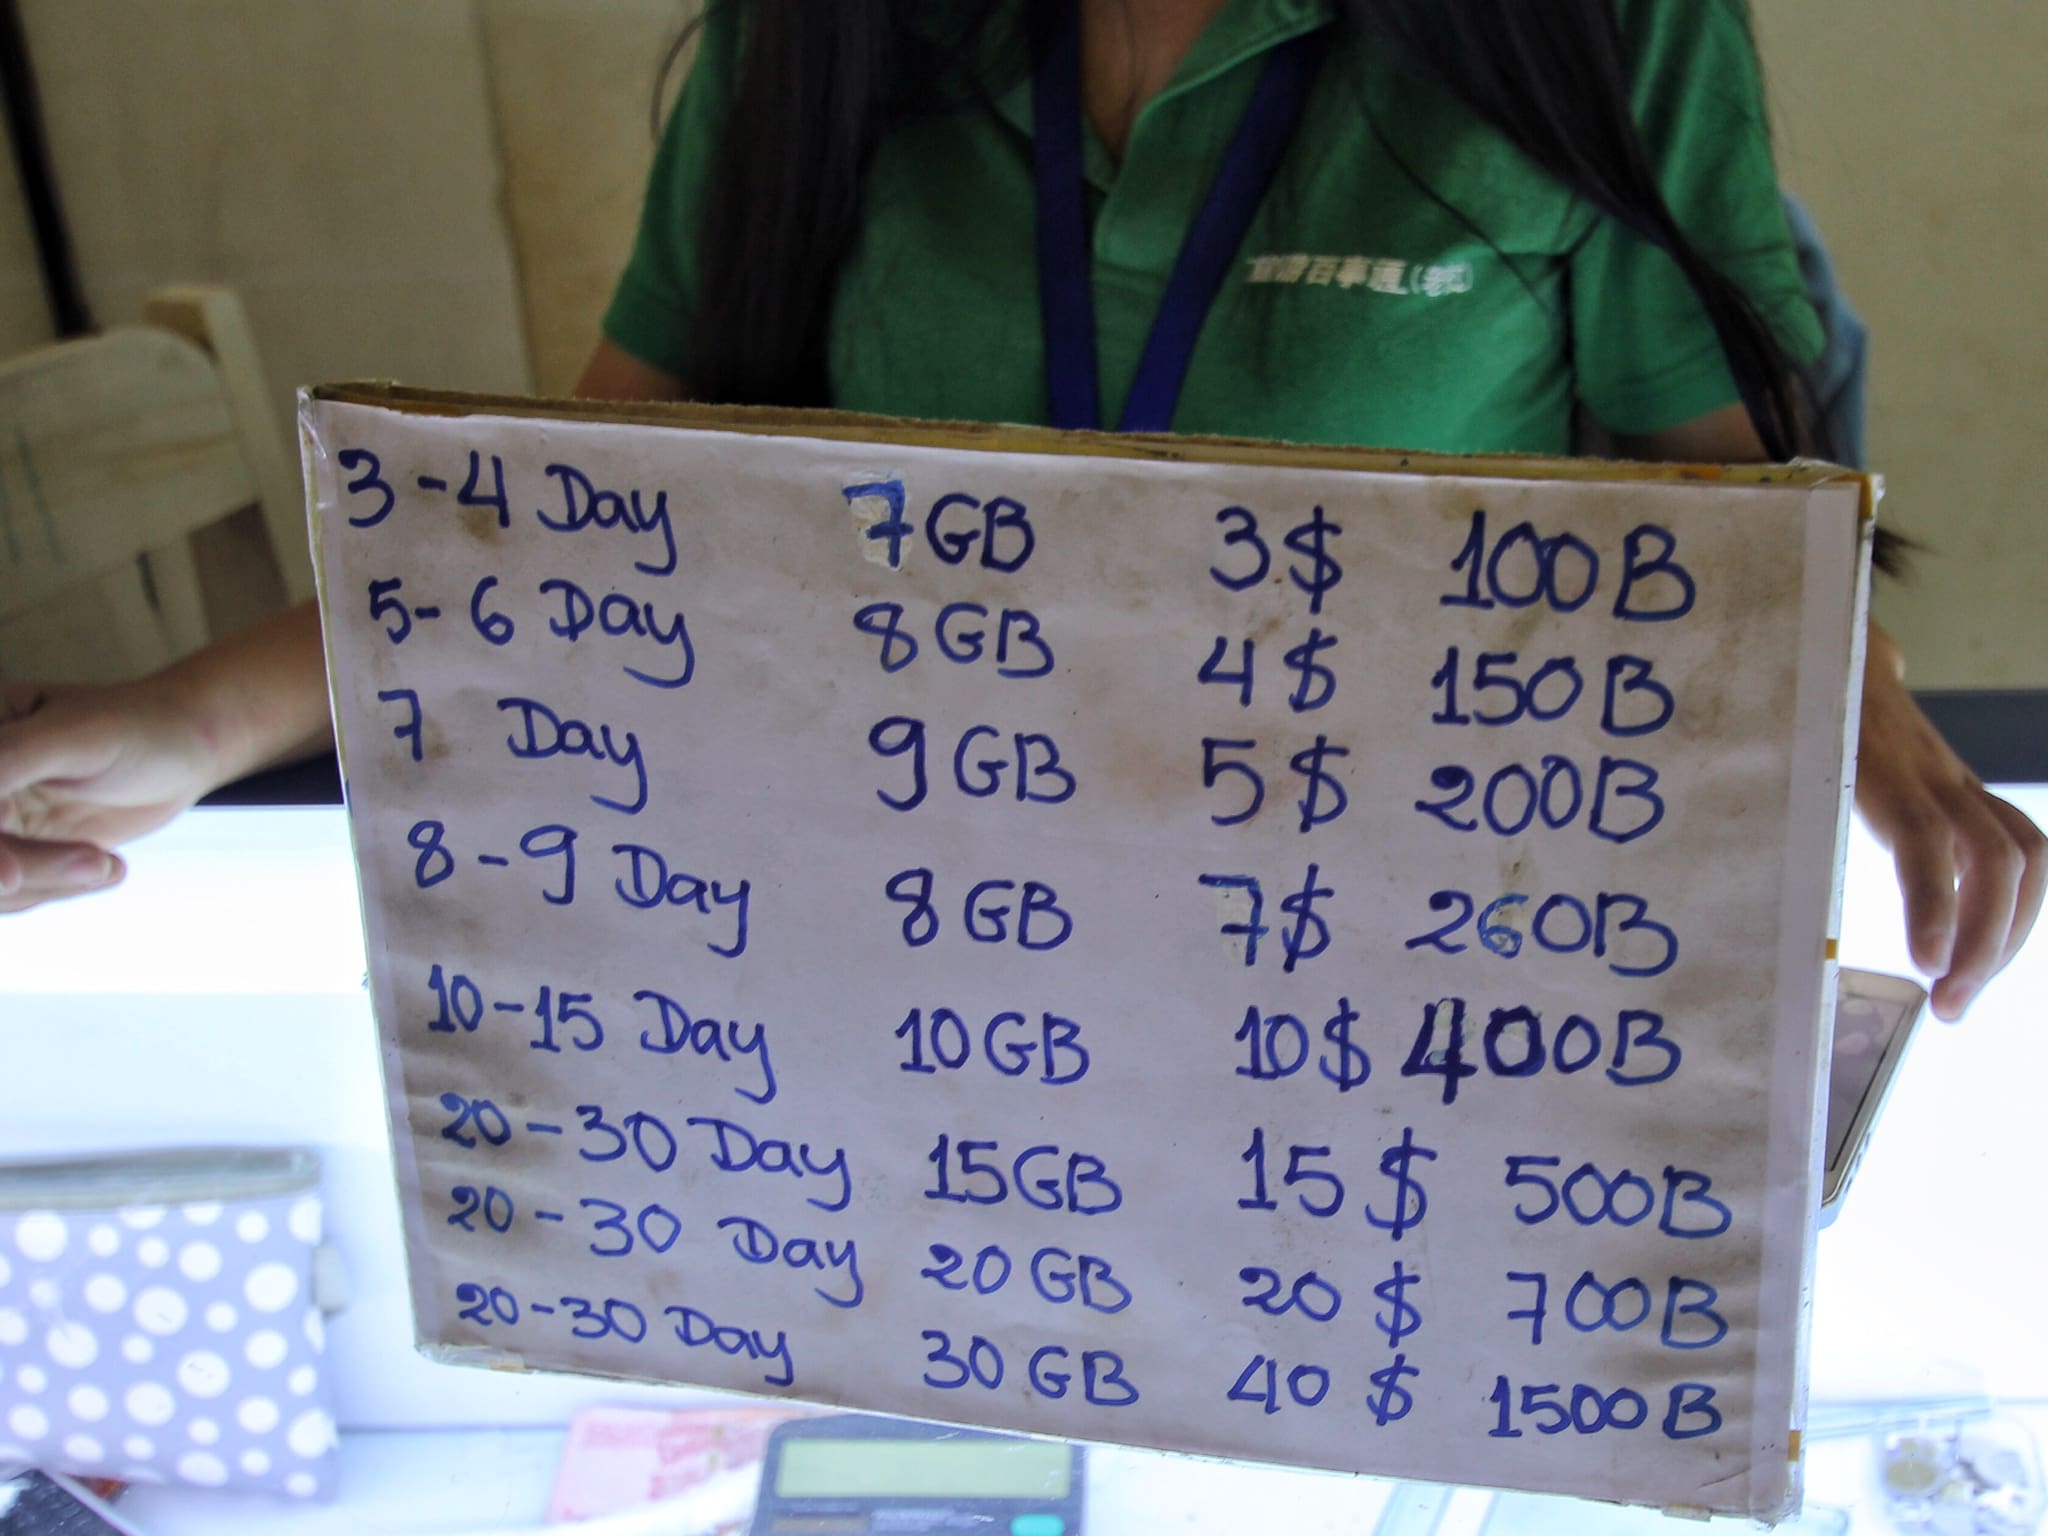 百事通
3-4 Day 7GB 3$ 100B
5-6 Day 8GB 4$ 150B
7 Day 9GB 5$ 200B
8-9 Day 8GB 7$ 260B
10-15 Day 10GB 10$ 400B
20-30 Day 15GB 15$ 500B
20-30 Day 20GB 20$ 700B
20-30 Day 30GB 40$ 1500B